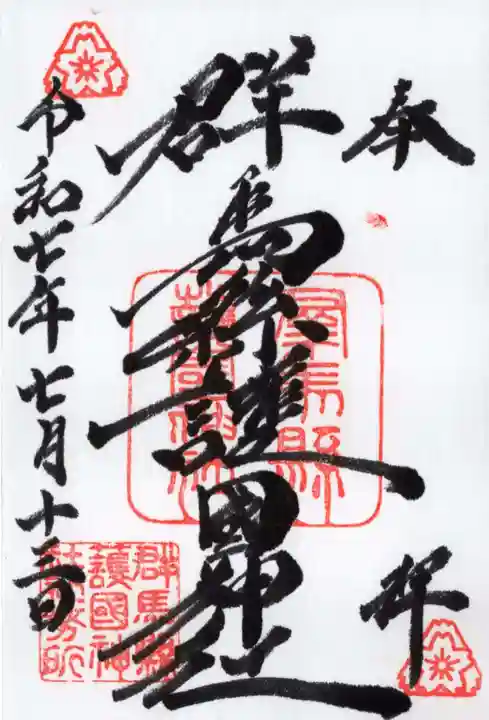 奉拝
群馬縣護國神社
令和七年七月十三日
群馬縣
護國神社
群馬縣
護國神
社務所